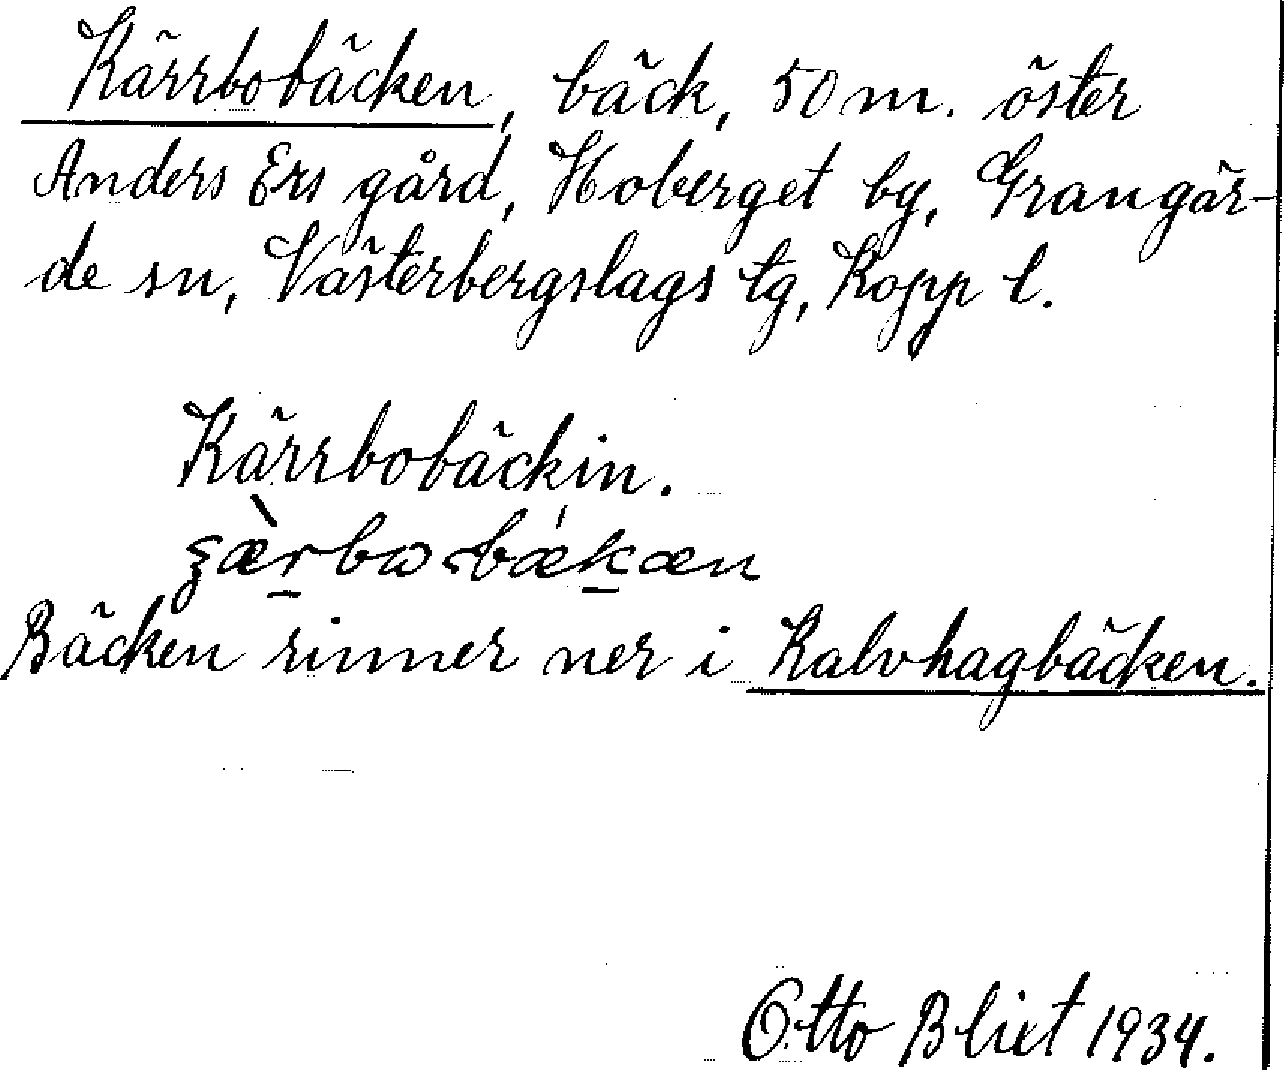 Kärrbobäcken, bäck, 50 m. öster
Anders Ers gård, Hoberget by, Grangär-
de sn, Västerbergslags tg, Kopp l.
Kärrbobäckin.
Bäcken rinner ner i Kalvhagbäcken.
Otto Bliet 1934.